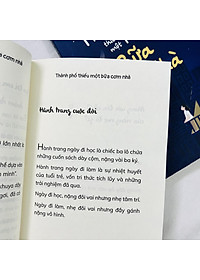 Thành phố thiếu một bữa cơm nhà
Hành trang cuộc đời
Hành trang ngày đi học là chiếc ba lô chứa
những cuốn sách dày cộm, nặng vài ba ký.
Hành trang ngày đi làm là sự nhiệt huyết
của tuổi trẻ, vốn tri thức tích lũy và những
trải nghiệm đã qua.
Ngày đi học, nặng đôi vai nhưng nhẹ tâm trí.
Ngày đi làm, nhẹ đôi vai nhưng đầy gánh
nặng vô hình.
lớn nhất là
dựa vào
mình".
khuya dậy
Bữa
một